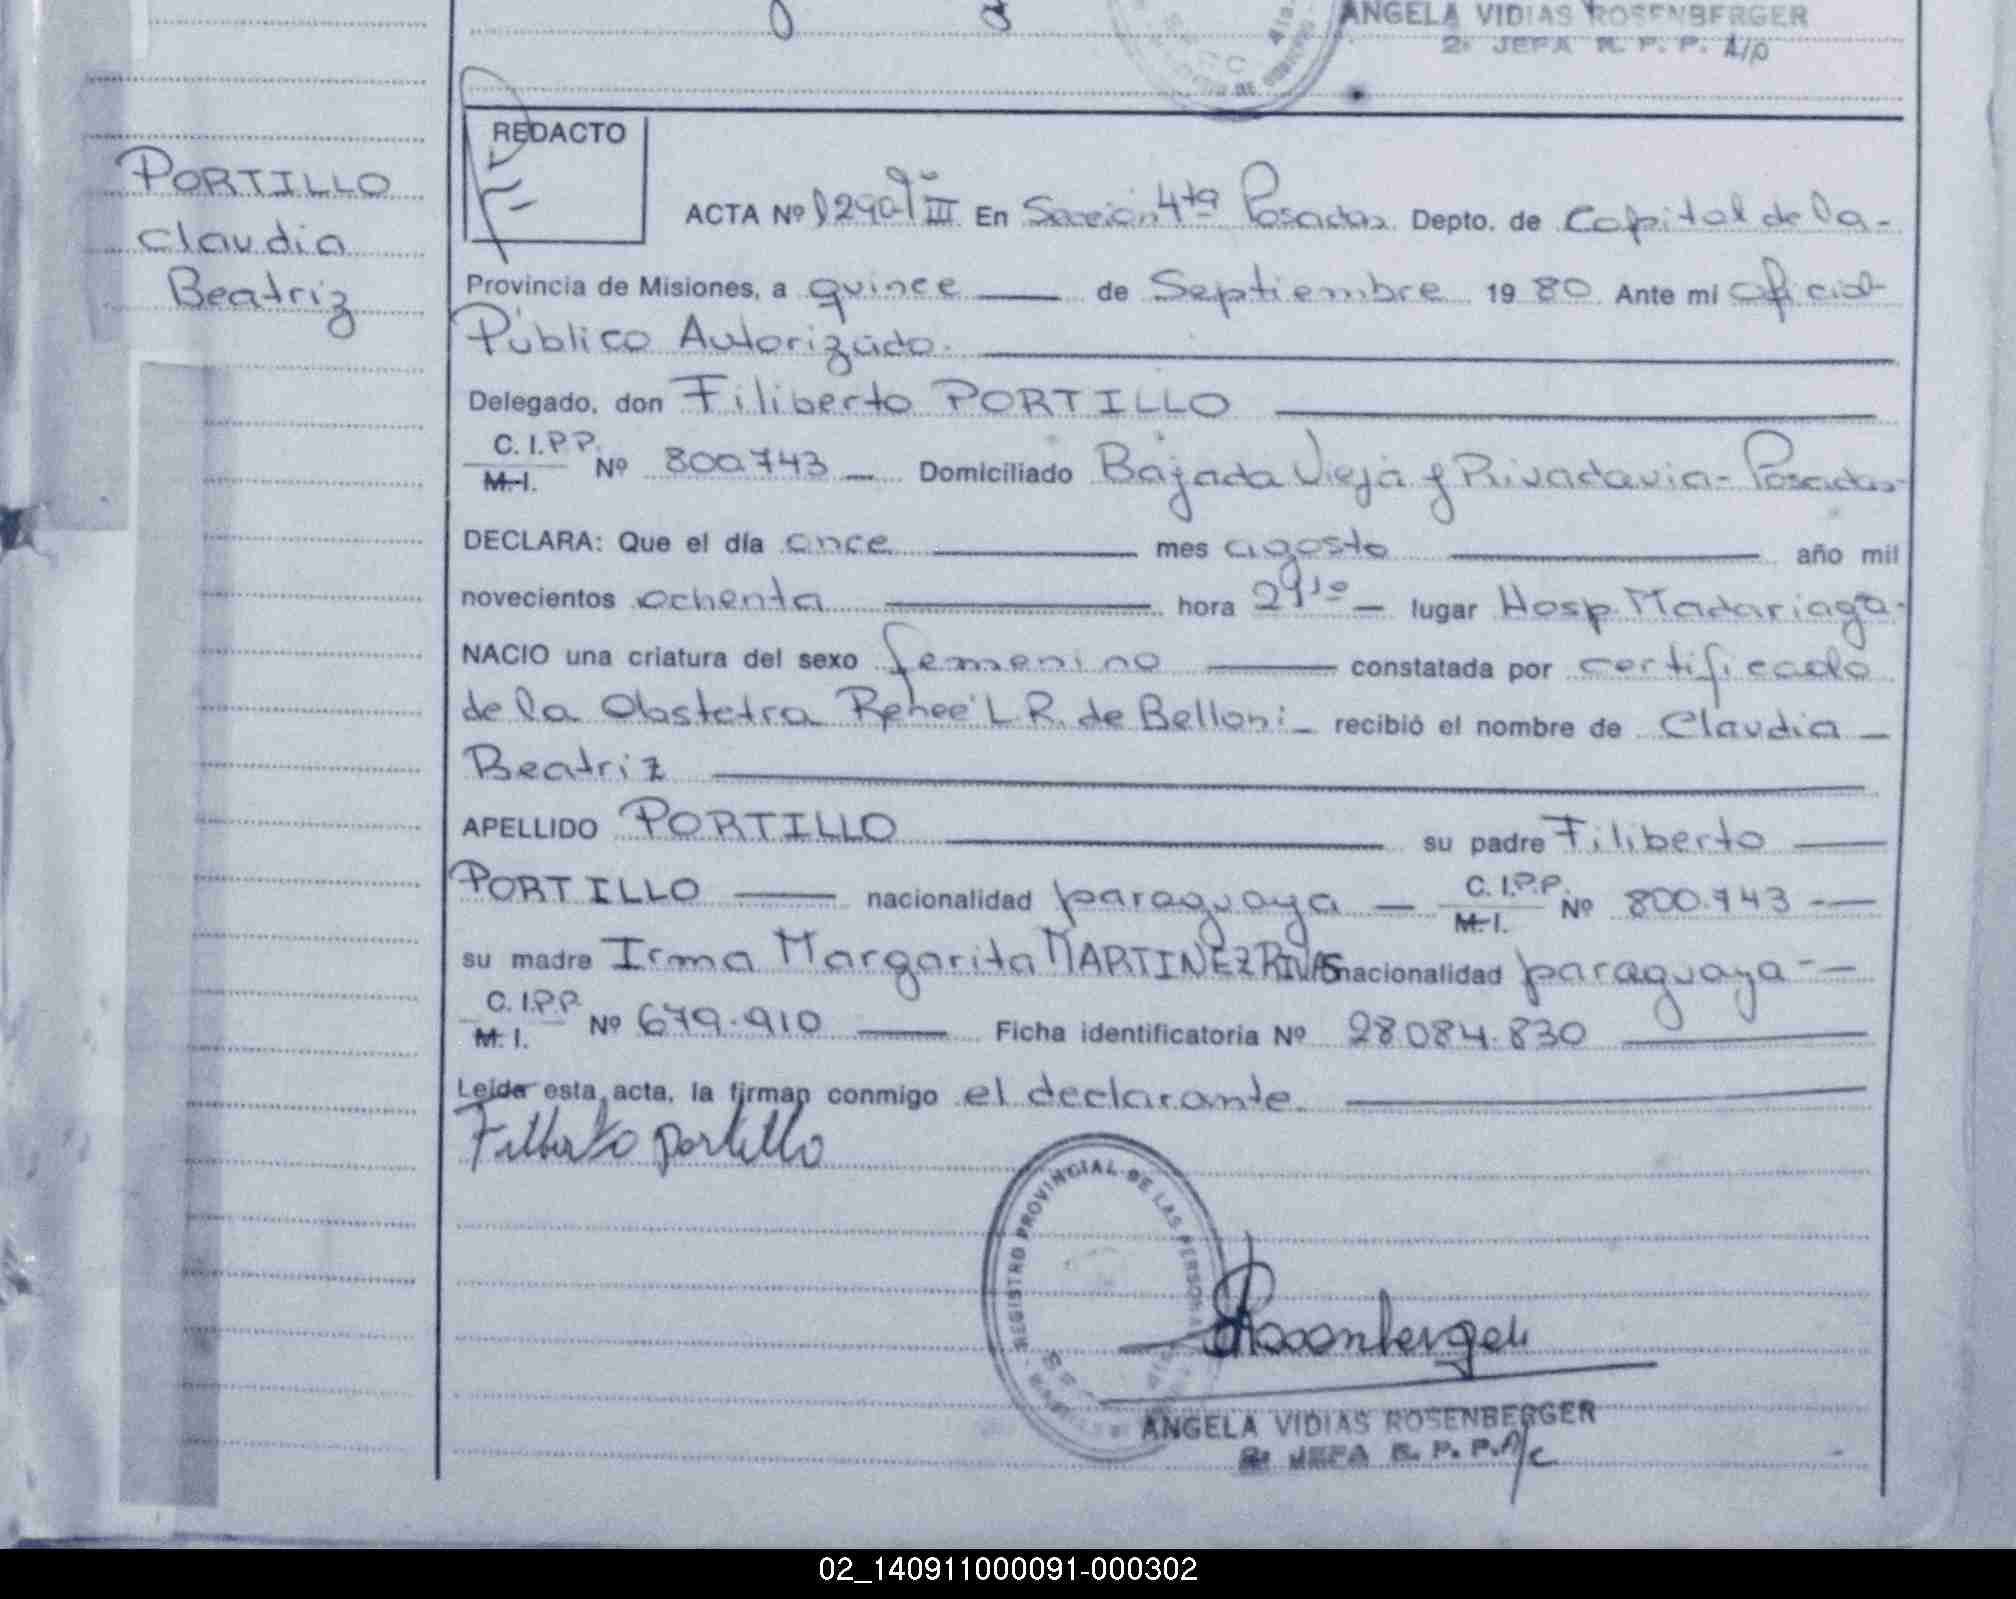 ANGELA VIDIAS ROSENBERGER
2ª JEFA R. P. P. A/c
PORTILLO
Claudia
Beatriz
REDACTO
ACTA Nº 1290 Tº III En Sección 4ta Posadas Depto. de Capital de la-
Provincia de Misiones, a quince de Septiembre 1980 Ante mi Oficial
Público Autorizado.
Delegado, don Filiberto PORTILLO
C. I.P.P.
M. I. Nº 800.743 Domiciliado Bajada Vieja y Rivadavia- Posadas-
DECLARA: Que el día once mes agosto año mil
novecientos ochenta hora lugar Hosp. Madariaga-
NACIO una criatura del sexo femenino constatada por certificado
de la Obstetra Reneé L R. de Belloni- recibió el nombre de Claudia
Beatriz
APELLIDO PORTILLO su padre Filiberto
PORTILLO nacionalidad paraguaya C. I.P.P.
M. I. Nº 800.743
su madre Irma Margarita MARTINEZ RIVAS nacionalidad paraguaya
C. I.P.P.
M. I. Nº 679.910 Ficha identificatoria Nº 28.084.830
Leída esta acta, la firman conmigo el declarante.
Filiberto Portillo
REGISTRO PROVINCIAL DE LAS PERSONAS
Rosenberger
ANGELA VIDIAS ROSENBERGER
2ª JEFA R. P. P. A/c
02_140911000091-000302